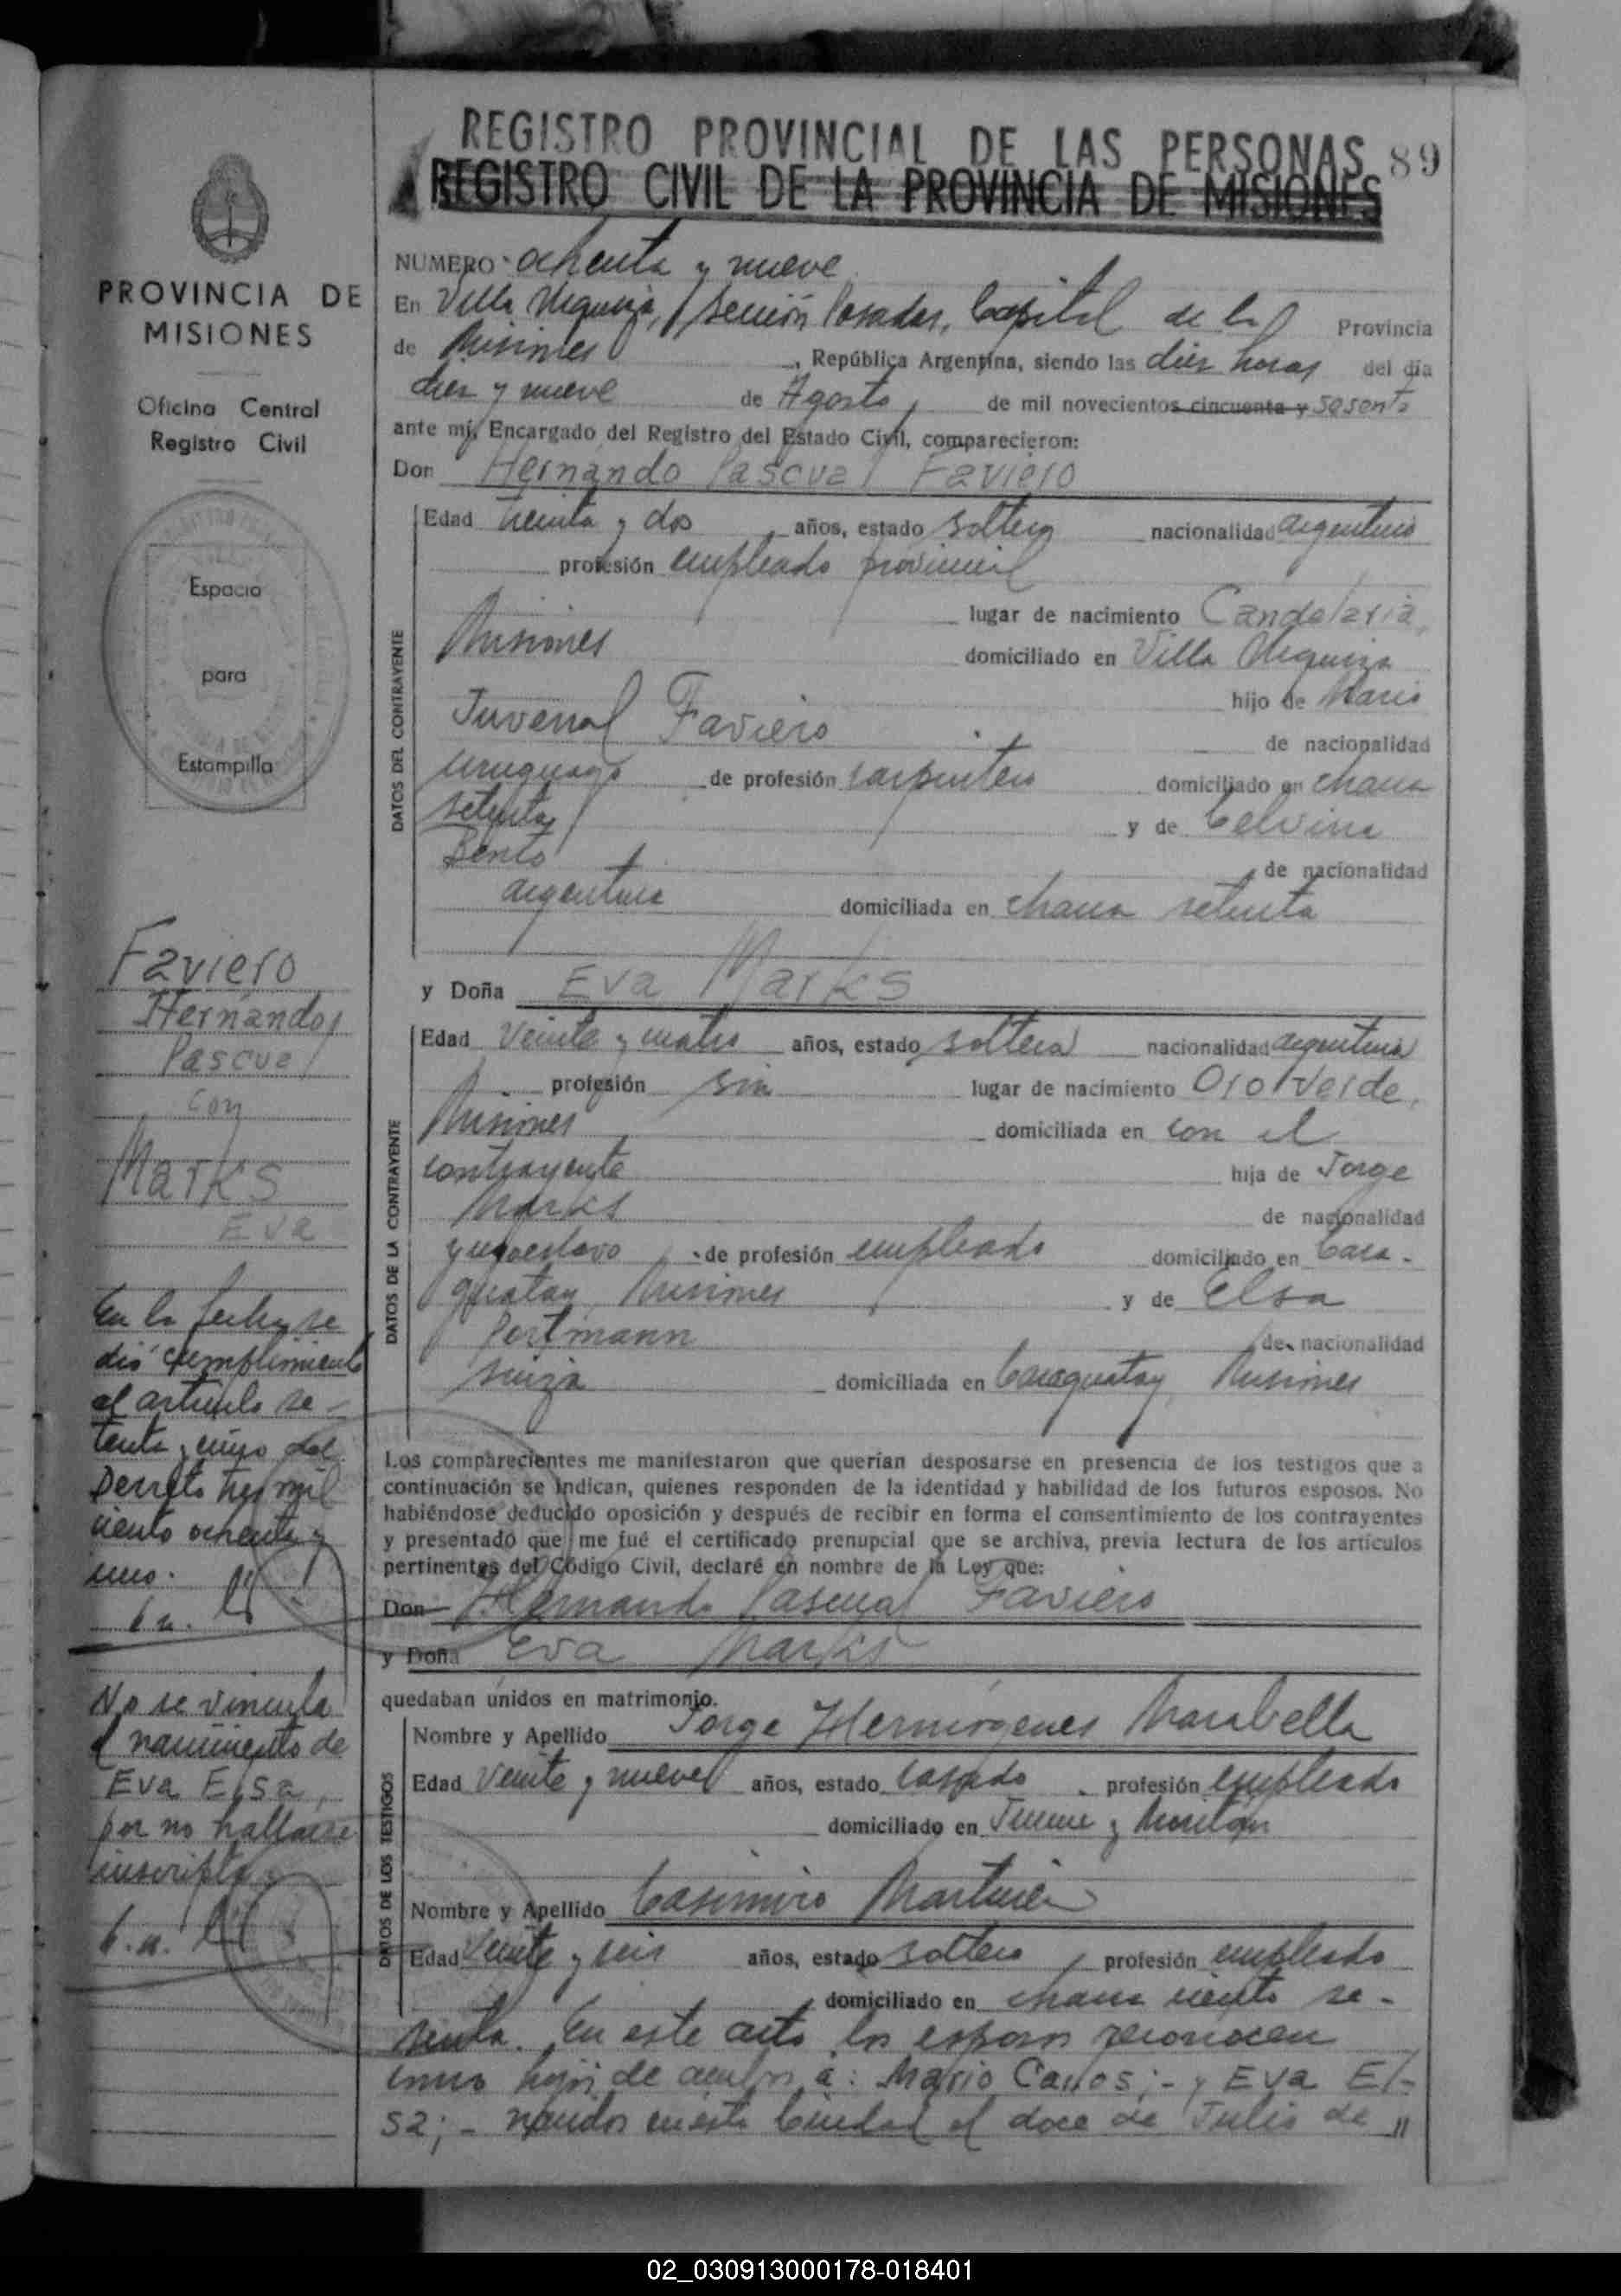 REGISTRO PROVINCIAL DE LAS PERSONAS 89
REGISTRO CIVIL DE LA PROVINCIA DE MISIONES
PROVINCIA DE
MISIONES
Oficina Central
Registro Civil
Espacio
para
Estampilla
Faviero
Hernando
Pascual
con
Marks
Eva
En la fecha se
dió cumplimiento
al artículo se-
tenta y cinco del
Decreto tres mil
ciento ochenta y
uno.
No se vincula
el nacimiento de
Eva Elsa,
por no hallarse
inscripta
NUMERO ochenta y nueve
En Villa Urquiza, sección Posadas, Capital de la Provincia
de Misiones, República Argentina, siendo las diez horas del día
diez y nueve de Agosto de mil novecientos cincuenta y sesenta
ante mí, Encargado del Registro del Estado Civil, comparecieron:
Don Hernando Pascual Faviero
DATOS DEL CONTRAYENTE
Edad treinta y dos años, estado soltero nacionalidad argentino
profesión empleado provincial
lugar de nacimiento Candelaria,
Misiones domiciliado en Villa Urquiza
hijo de Mario
Juvenal Faviero de nacionalidad
uruguayo de profesión carpintero domiciliado en chacra
setenta y de Celvina
Bento de nacionalidad
argentina domiciliada en chacra setenta
y Doña Eva Marks
DATOS DE LA CONTRAYENTE
Edad veinte y cuatro años, estado soltera nacionalidad argentina
profesión sin lugar de nacimiento Oro Verde,
Misiones domiciliada en con el
contrayente hija de Jorge
Marks de nacionalidad
yugoeslavo de profesión empleado domiciliado en Cara-
guatay, Misiones y de Elsa
Portmann de nacionalidad
suiza domiciliada en Caraguatay Misiones
Los comparecientes me manifestaron que querían desposarse en presencia de los testigos que a
continuación se indican, quienes responden de la identidad y habilidad de los futuros esposos. No
habiéndose deducido oposición y después de recibir en forma el consentimiento de los contrayentes
y presentado que me fué el certificado prenupcial que se archiva, previa lectura de los artículos
pertinentes del Código Civil, declaré en nombre de la Ley que:
Don Hernando Pascual Faviero
y Doña Eva Marks
quedaban unidos en matrimonio.
DATOS DE LOS TESTIGOS
Nombre y Apellido Jorge Hermógenes Marabella
Edad veinte y nueve años, estado casado profesión empleado
domiciliado en y
Nombre y Apellido Casimiro Martinez
Edad veinte y seis años, estado soltero profesión empleado
domiciliado en chacra ciento se-
senta. En este acto los esposos reconocen
como hijos de ambos a: Mario Carlos;- y Eva El-
sa;- nacidos en esta Ciudad el doce de Julio de
02_030913000178-018401